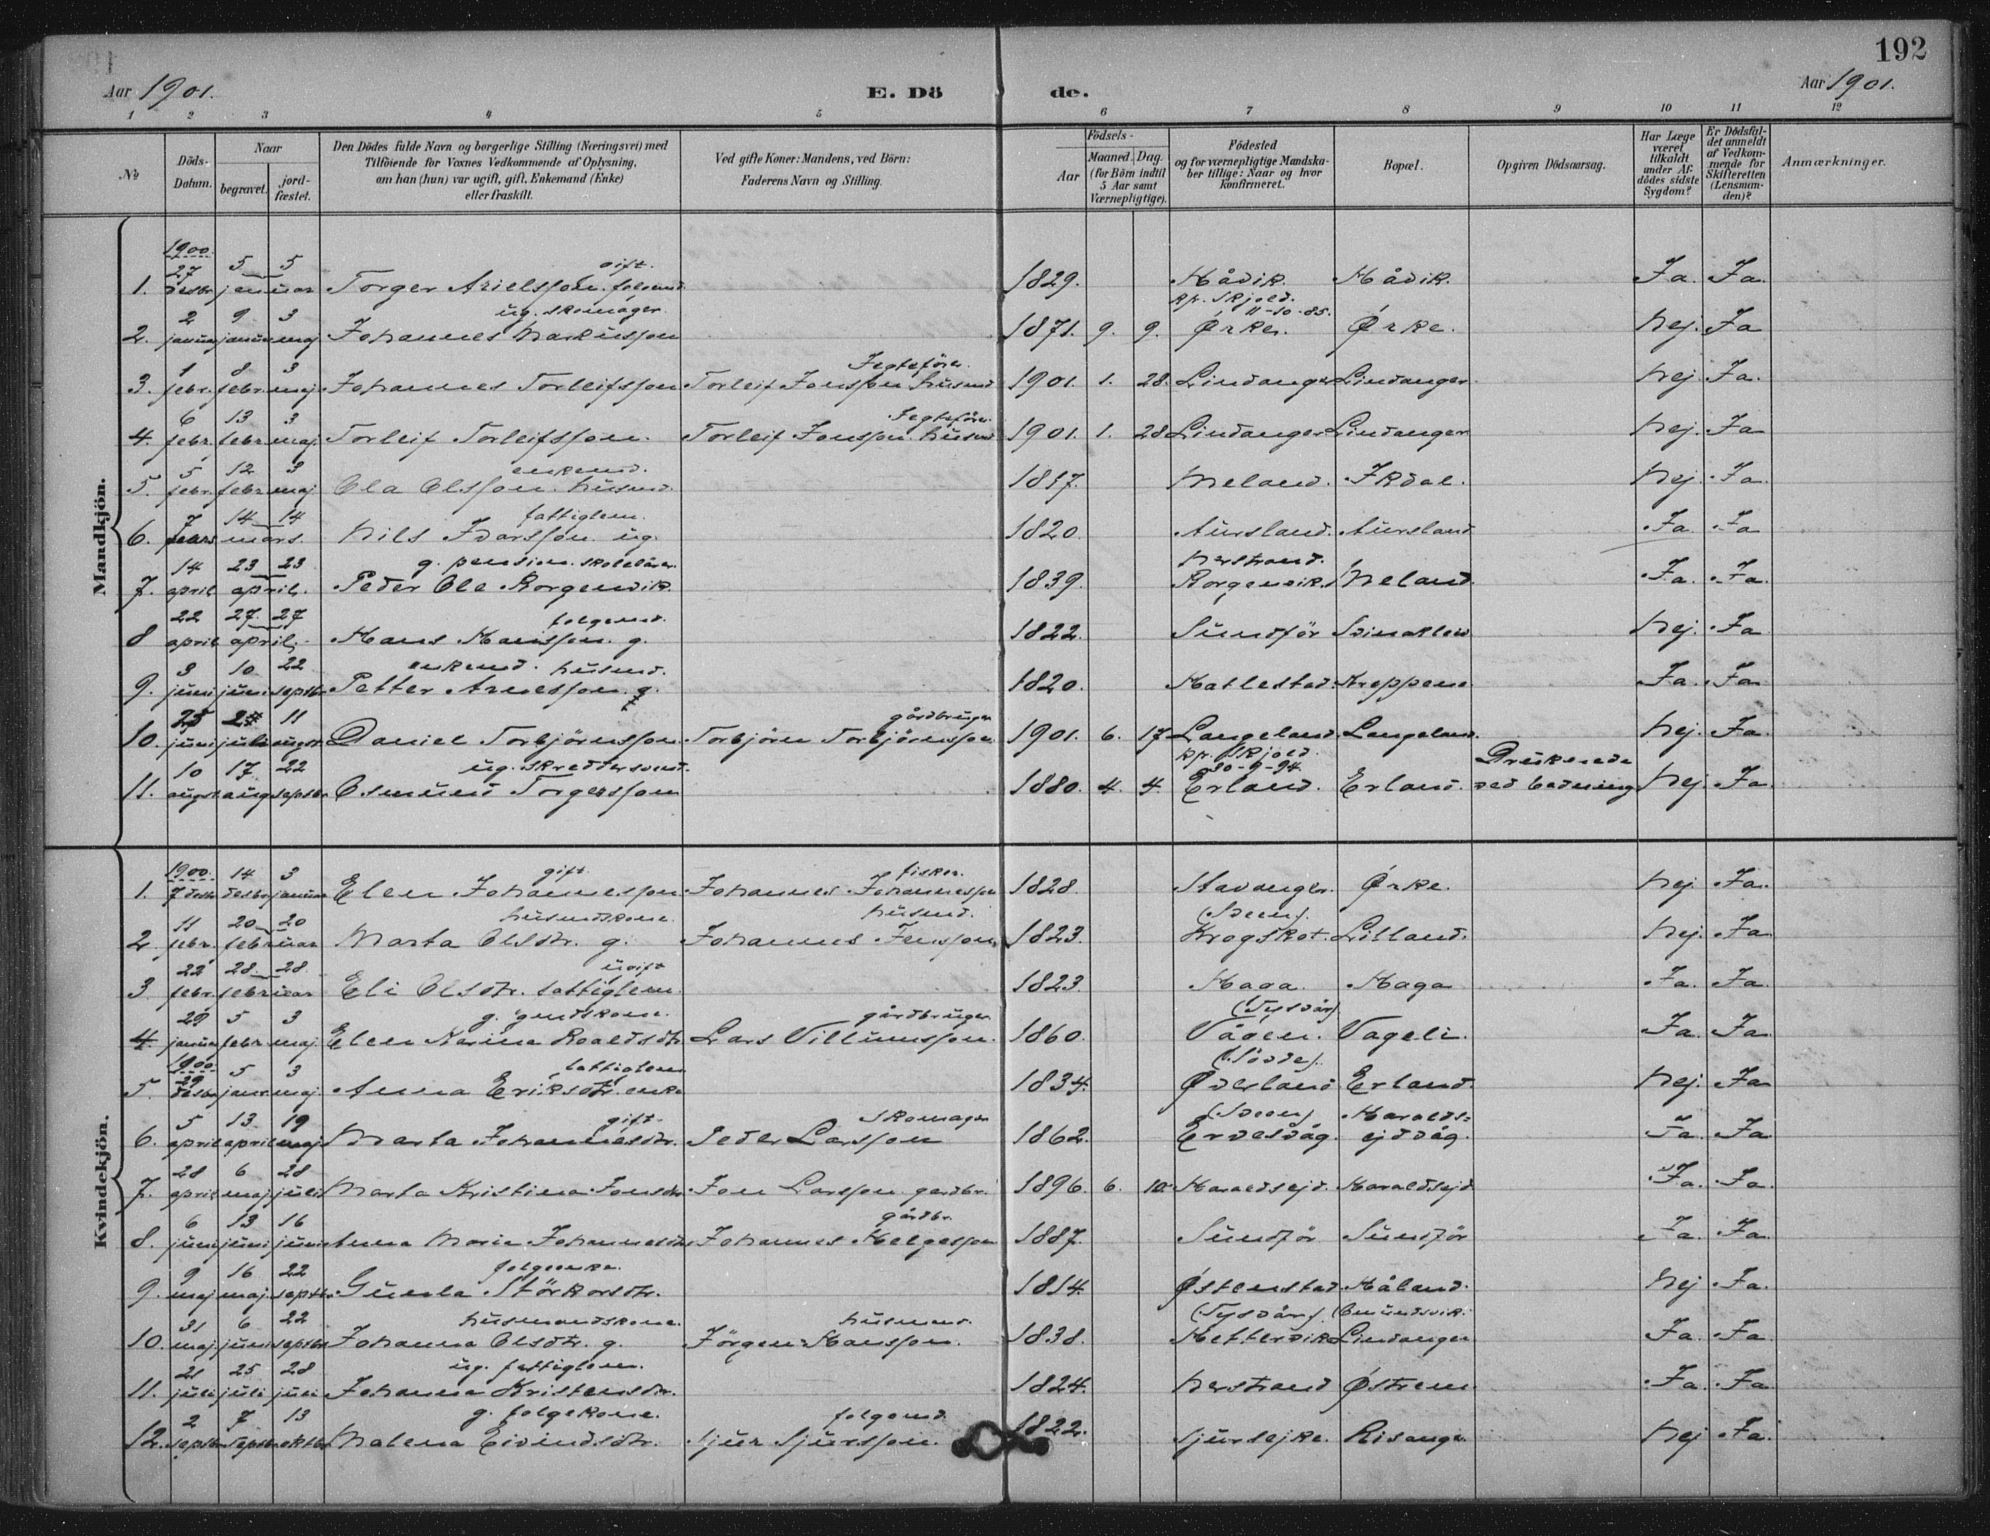 192
Aar 1901.
E. Dö
de.
Aar 1901.
1 2 3 4 5 6 7 8 9 10 11 12
№
Döds-Datum.
Naar
begravet.
jord-fæstet.
Den Dödes fulde Navn og borgerlige Stilling (Næringsvei) med
Tilföiende for Voxnes Vedkommende af Oplysning,
om han (hun) var ugift, gift, Enkemand (Enke)
eller fraskilt.
Ved gifte Koner: Mandens, ved Börn:
Faderens Navn og Stilling.
Födsels-
Aar
Maaned. Dag.
(for Börn indtil
5 Aar samt
Værnepligtige).
Födested
og for værnepligtige Mandska-
ber tillige: Naar og hvor
konfirmeret.
Bopæl.
Opgiven Dödsaarsag.
Har Læge
været
tilkaldt
under Af-
dödes sidste
Sygdom?
Er Dödsfal-
det anmeldt
af Vedkom-
mende for
Skifteretten
(Lensman-
den)?
Anmærkninger.
Mandkjön.
1900
27 5 5 gift.
1. desbr januar Torger 1829. Hådik. Ja. Ja.
2 9 3 ug. skomager kfr. Skjold. 11-10-85.
2. januar januar maj Johannes Markusson 1871. 9. 9. Ørke. Ørke. Nej. Ja
1 8 3 Jegtefører
3. febr. febr. maj Johannes Torleifsson Torleif Jonsson husmd 1901. 1. 28. Lindanger Lindanger. Nej. Ja.
6 13 3 Jegtefører
4. febr. febr. maj Torleif Torleifsson. Torleif Jonsson husmd 1901. 1. 28 Lindanger Lindanger Nej. Ja
5 12 3 enkemd.
5. febr. febr. maj Ola Olsson. husmd. 1817. Meland. Ikdal. Nej. Ja.
7 14 14 fattiglem.
6. mars Nils Ivarsson. ug. 1820. Aursland. Aursland Ja. Ja
14 23 23 g. pension. skolelærer Nerstrand.
7. april april. Peder Ole Borgenvik. 1839. Borgenvik. Meland. Ja. Ja.
22 27. 27 folgemd.
8 april april. Hans Hansson. g. 1822. Sundför Nej. Ja
3 10 22 enkemd. husmd.
9. juni juni septbr Petter Arnesson. 1820. Hatlestad. Kroppene Ja. Ja
25 11 gårdbruger
10. juni juli august Daniel Torbjörnsson Torbjörn Torbjörnsson 1901. 6. 17 Langeland. Langeland. Nej. Ja.
10 17. 22 ug. skreddersvend. kfr. Skjold. 30-9-94. Druknede
11. august aug. septbr Osmund Torgersson 1880. 4. 4. Erland. Erland. ved badning Nej. Ja
Kvindekjön.
1900. 14 3 gift. fisker.
1. 7 desbr desbr januar Elen Johannesson Johannes Johannesson 1828. Stavanger. Ørke. Nej Ja.
11 20 20 husmdskone. husmd. (Sveen).
2. febr. februar Marta Olsdtr. g. Johannes Jensson 1823. Krogskot. Lilland. Nej. Ja
22 28 28 ugift
3 febr. februar Eli Olsdtr. fattiglem. 1823. Haga. Haga Ja. Ja
29 5 3 g. gmdskone. gårdbruger. (Tysvär)
4. januar febr. maj. Elen Karina Roaldsdtr. Lars Villumsson. 1860. Vågen. Vageli. Ja. Ja
1900 29 5 3 fattiglem (Sövde).
5. desbr janr. maj. Anna Eriksdtr. enke 1834. Øverland Erland. Nej. Ja
5 13 19 gift. skomager (Sveen) Haralds-
6. april april maj Marta Johannesdtr. Peder Larsson 1862. Ervesvåg. ejdvåg. Ja. Ja
28 6 28
7. april maj juli Marta Kristina Jonsdtr Jon Larsson gardbr. 1896. 6. 10. Haraldsejd. Haraldsejd Ja. Ja.
6 13 16 gårdbr.
8. juni juni juni Anna Maria Johannesdtr Johannes Helgesson 1887. Sundför Sundför Ja. Ja
9 16 22 folgeenke.
9. maj maj. septbr. Gunla Störkorsdtr. 1814. Østenstad. Håland. Nej Ja.
31 6 22 husmandskone. husmd. (Tysvär). Omundsvik.
10. maj juni septbr Johanna Olsdtr. g. Jörgen Hansson. 1838. Hettervik Lindanger Ja. Ja.
21 25 28 ug. fattiglem.
11. juli juli juli Johanna Kristensdtr. 1824. Nerstrand Østrem. Ja. Ja
2 7 13 g. folgekone. folgemd.
12. septbr septbr oktbr Malena Eivindsdtr. Sjur Sjursson. 1822. Sjursejke. Risanger Nej Ja.